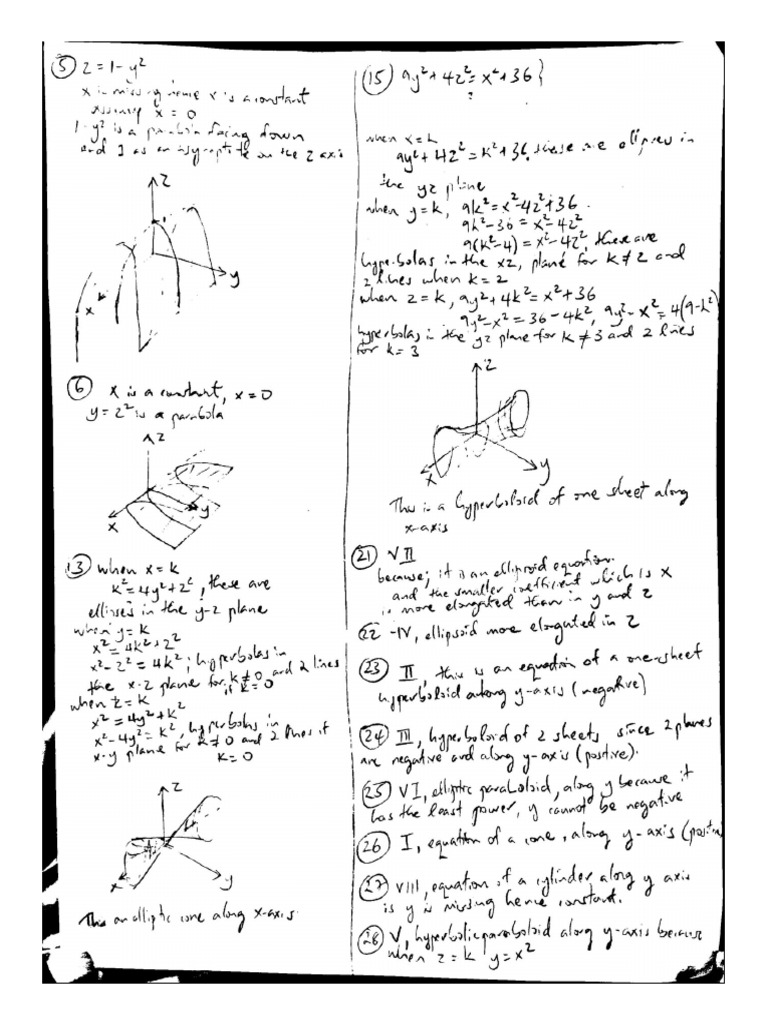 ⑤ z = 1 - y²
x is missing hence x is a constant
assuming x = 0
1-y² is a parabola facing down
and 1 as an asymptote on the z axis
z
y
x
⑥ x is a constant, x = 0
y = z² is a parabola
z
x
y
⑬ when x = k
k² = 4y² + z², these are
ellipses in the y-z plane
when y = k
x² = 4k² + z²
x² - z² = 4k²; hyperbolas in
the x-z plane for k ≠ 0 and 2 lines
if k = 0
when z = k
x² = 4y² + k²
x² - 4y² = k², hyperbolas in
x-y plane for k ≠ 0 and 2 lines if
k = 0
z
x
y
This an elliptic cone along x-axis.
⑮ 9y² + 4z² = x² + 36
when x = k
9y² + 4z² = k² + 36, these are ellipses in
the yz plane
when y = k, 9k² = x² - 4z² + 36
9k² - 36 = x² - 4z²
9(k² - 4) = x² - 4z², these are
hyperbolas in the xz, plane for k ≠ 2 and
2 lines when k = 2
when z = k, 9y² + 4k² = x² + 36
9y² - x² = 36 - 4k², 9y² - x² = 4(9 - k²)
hyperbolas in the yz plane for k ≠ 3 and 2 lines
for k = 3
z
x
y
This is a hyperboloid of one sheet along
x-axis
㉑ VII
because; it is an ellipsoid equation.
and the smaller coefficient which is x
is more elongated than in y and z
㉒ - IV, ellipsoid more elongated in z
㉓ II, this is an equation of a one-sheet
hyperboloid along y-axis (negative)
㉔ III, hyperboloid of 2 sheets since 2 planes
are negative and along y-axis (postive).
㉕ VI, elliptic paraboloid, along y because it
has the least power, y cannot be negative
㉖ I, equation of a cone, along y-axis (positiv
㉗ VIII, equation of a cylinder along y axis
is y is missing hence constant.
㉘ V, hyperbolic paraboloid along y-axis because
when z = k y = x²